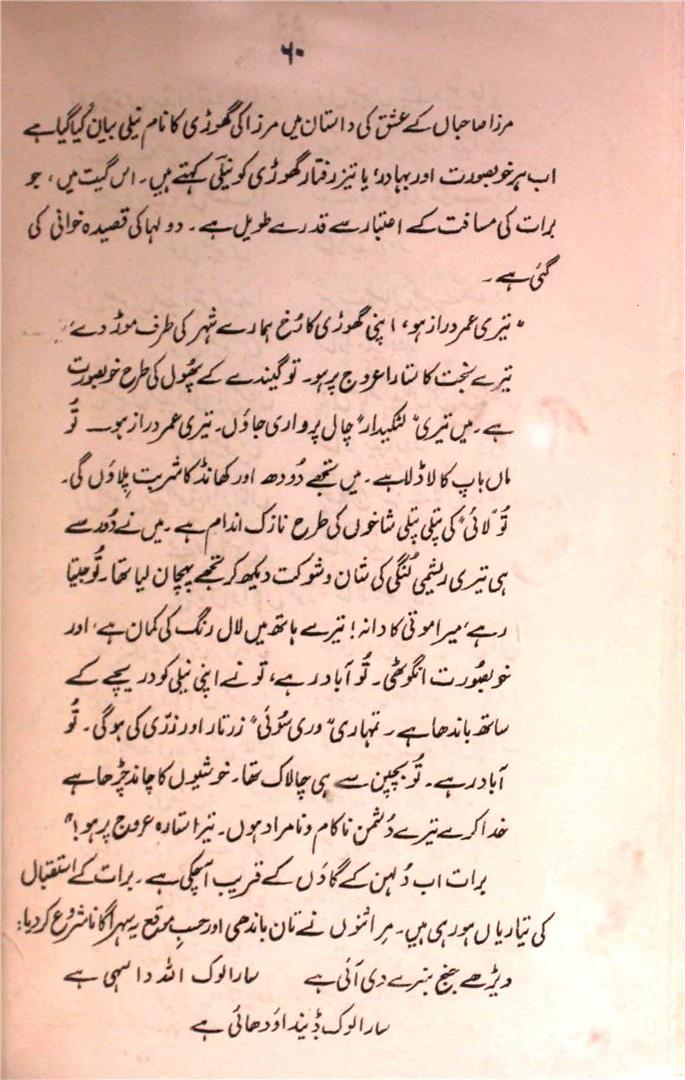 ۶۰
مرزا صاحباں کے عشق کی داستان میں مرزا کی گھوڑی کا نام نیلی بیان کیا گیا ہے
اب ہر خوبصورت اور بہادر یا تیز رفتار گھوڑی کو نیلی کہتے ہیں۔ اس گیت میں، جو
برات کی مسافت کے اعتبار سے قدرے طویل ہے۔ دولہا کی قصیدہ خوانی کی
گئی ہے۔
"تیری عمر دراز ہو، اپنی گھوڑی کا رُخ ہمارے شہر کی طرف موڑ دے،
تیرے بخت کا ستارا عروج پر ہو۔ تو گیندے کے پھُول کی طرح خوبصورت
ہے۔ میں تیری "لٹکیدار" چال پر واری جاؤں۔ تیری عمر دراز ہو۔ تُو
ماں باپ کا لاڈلا ہے۔ میں تجھے دُودھ اور کھانڈ کا شربت پلاؤں گی۔
تُو "لائی" کی پتلی پتلی شاخوں کی طرح نازک اندام ہے۔ میں نے دُور سے
ہی تیری ریشمی لُنگی کی شان و شوکت دیکھ کر تجھے پہچان لیا تھا۔ تُو جیتا
رہے، میرا موتی کا دانہ! تیرے ہاتھ میں لال رنگ کی کمان ہے، اور
خوبصُورت انگوٹھی۔ تُو آباد رہے، تو نے اپنی نیلی کو دریچے کے
ساتھ باندھا ہے۔ تمہاری "وری سُوئی" زرتار اور زرّی کی ہوگی۔ تُو
آباد رہے۔ تُو بچپن سے ہی چالاک تھا۔ خوشیوں کا چاند چڑھا ہے
خدا کرے تیرے دُشمن ناکام و نامراد ہوں۔ تیرا ستارہ عروج پر ہو!"
برات اب دُلہن کے گاؤں کے قریب آچکی ہے۔ برات کے استقبال
کی تیاریاں ہو رہی ہیں۔ مراثنوں نے تان باندھی اور حسبِ موقع یہ سہرا گانا شروع کر دیا:
ویڑھے جنج بنرے دی آئی ہے سارا لوک اللہ دا سہی ہے
سارا لوک ڈیندا ودھائی ہے